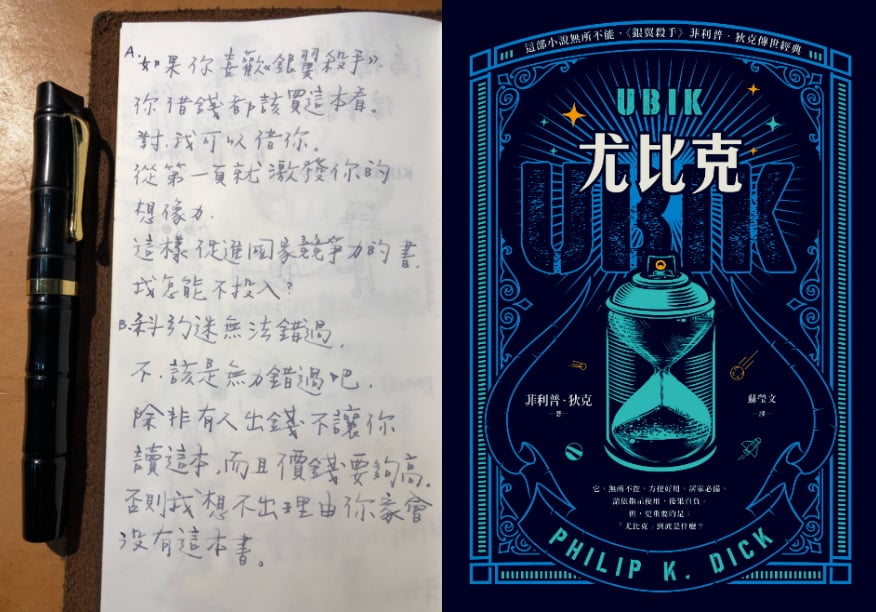 A. 如果你喜歡《銀翼殺手》,
你借錢都該買這本看。
對,我可以借你。
從第一頁就激發你的
想像力.
這樣促進國家競爭力的書,
我怎能不投入?
B. 科幻迷無法錯過,
不,該是無力錯過吧,
除非有人出錢不讓你
讀這本,而且價錢要夠高。
否則我想不出理由你家會
沒有這本書。
這部小說無所不能,《銀翼殺手》菲利普・狄克傳世經典
UBIK
尤比克
UBIK
菲利普・狄克
著
蘇瑩文
譯
它,無所不在,方便好用,居家必備。
請依指示使用,後果自負。
但,更重要的是:
「尤比克」到底是什麼?
PHILIP K. DICK